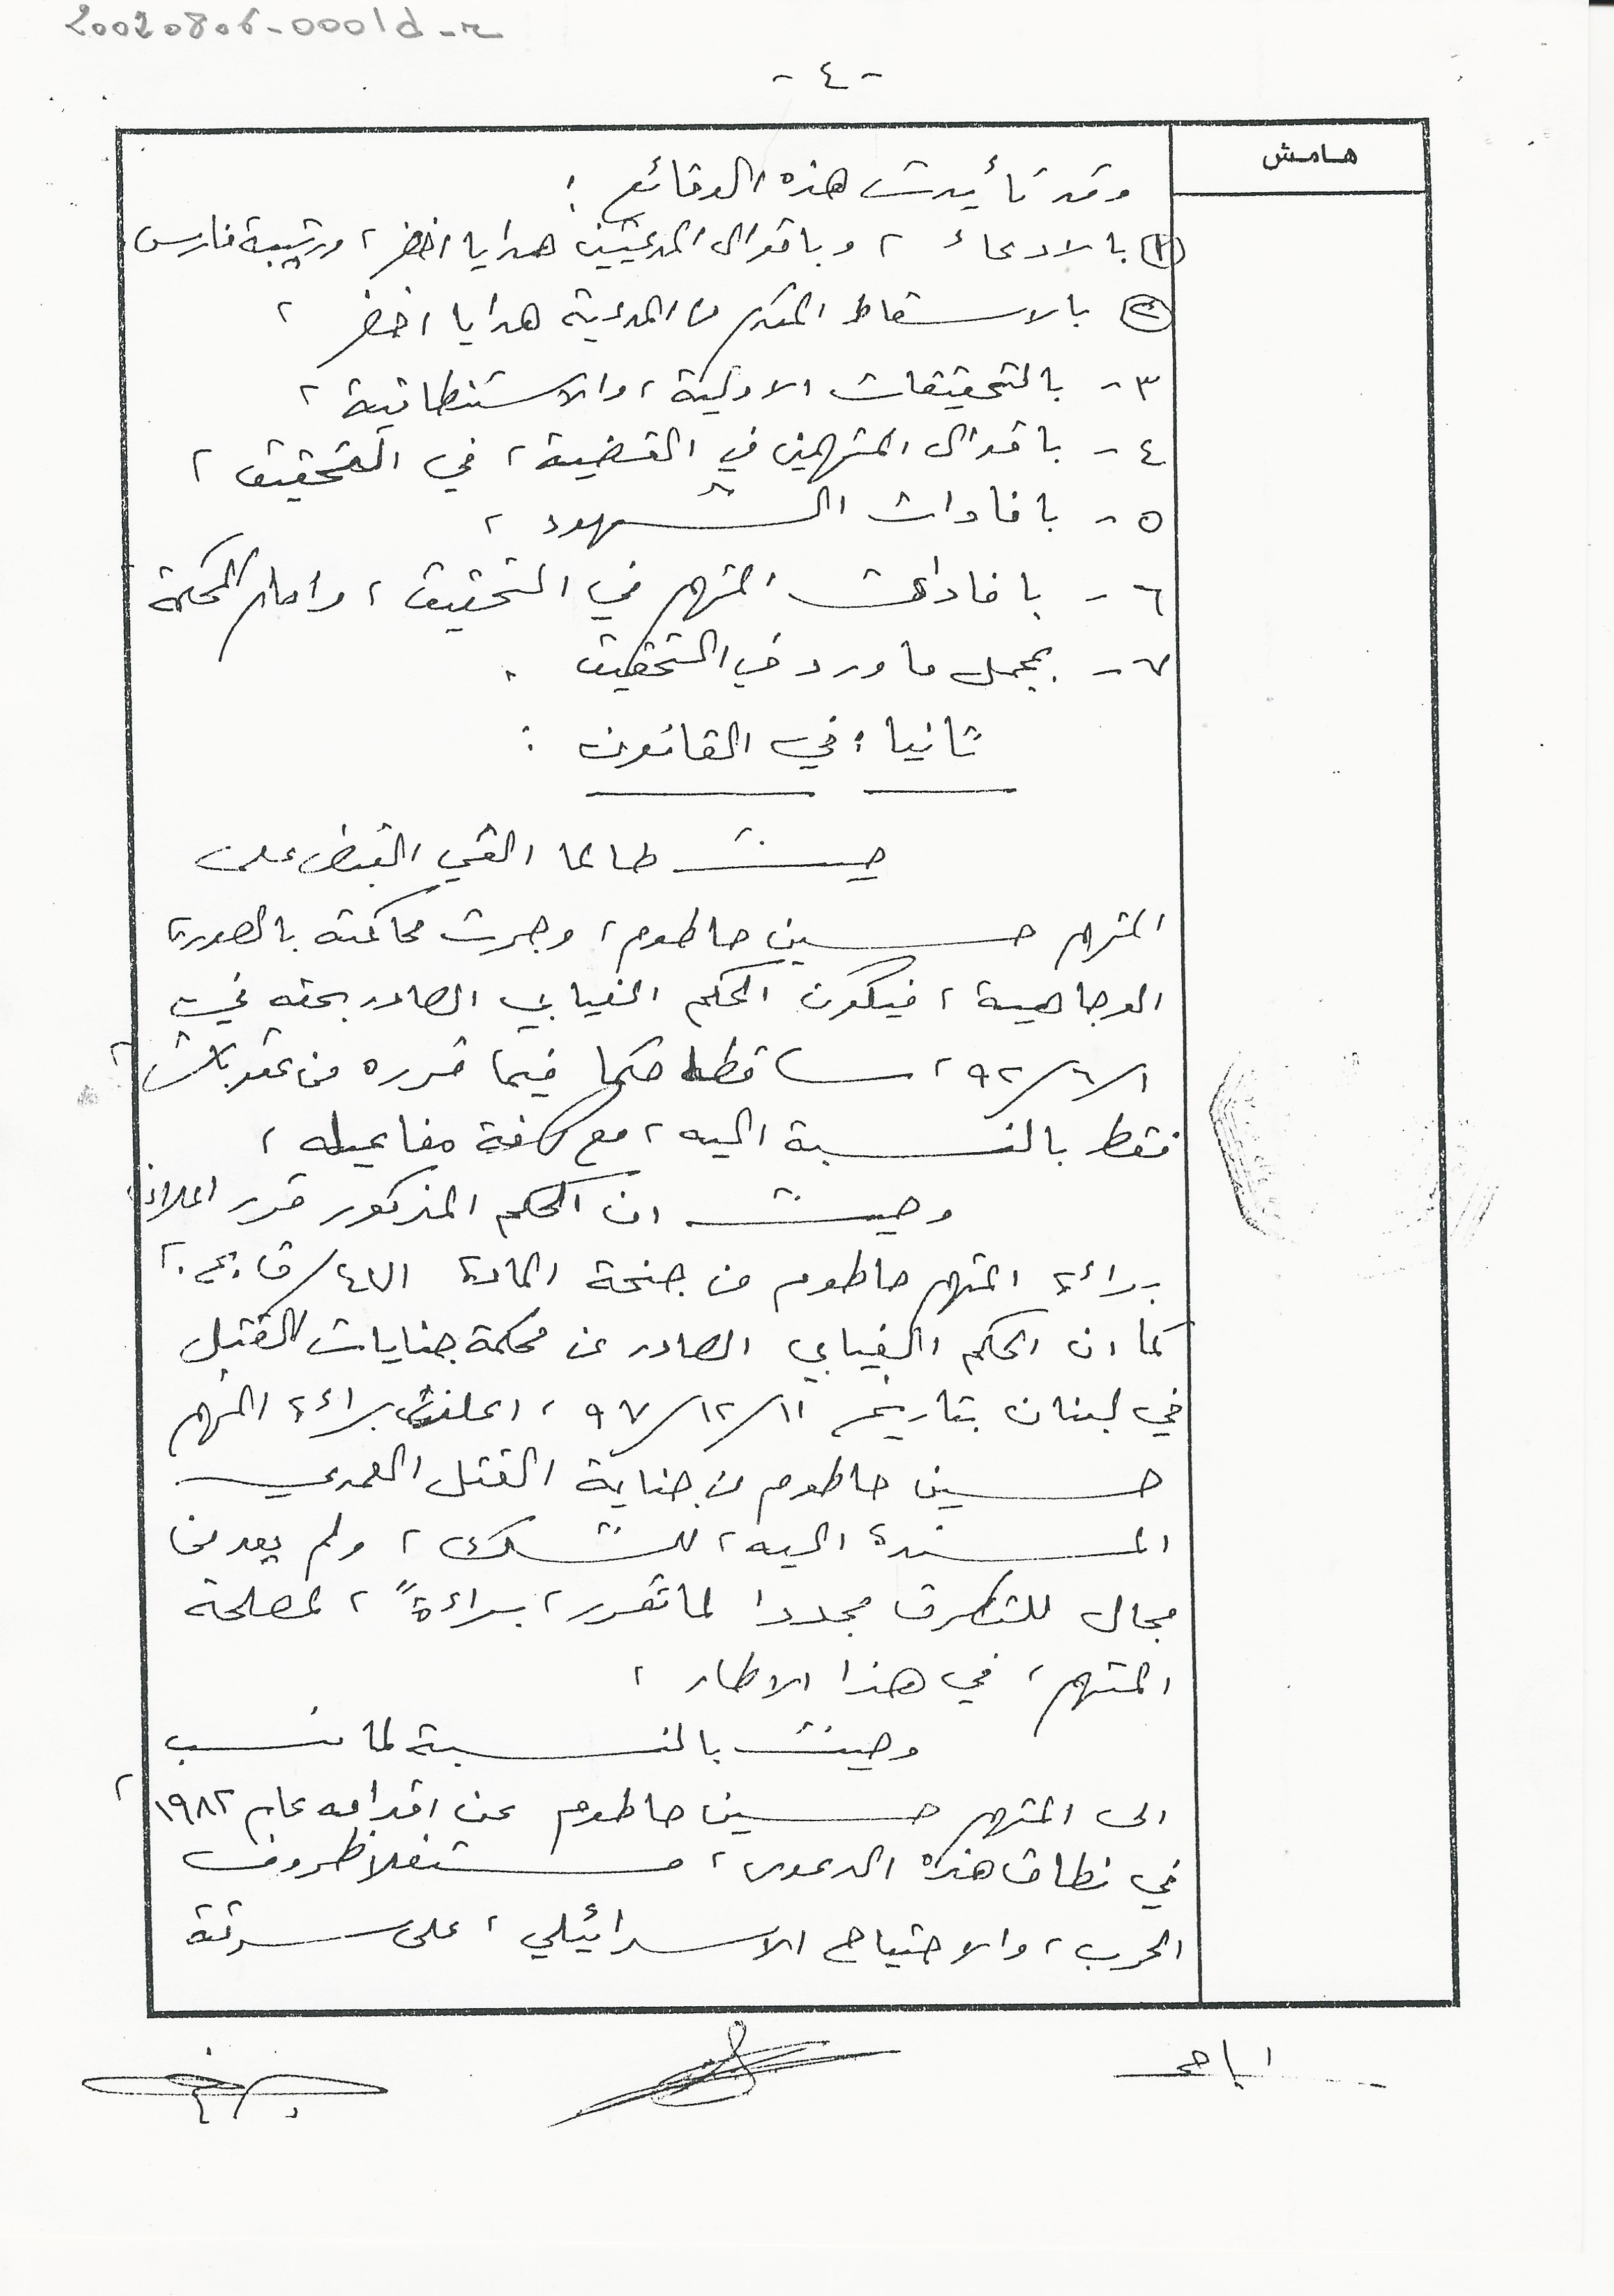 20020806-0001d-r
- ٤ -
هامش
وقد تأيدت هذه الوقائع :
١ بالادعاء ، وباقوال المدعيتين هدايا اخضر ، و فارس
٢ بالاسقاط المقدم من المدعية هدايا اخضر ،
٣- بالتحقيقات الاولية ، والاستنطاقية ،
٤- باقوال المتهمين في القضية ، في التحقيق ،
٥- بافادات الشهود ،
٦- بافادات المتهم في التحقيق ، وامام المحكمة
٧- بمجمل ما ورد في التحقيق .
ثانيا : في القانون :
حيث طالما القي القبض على
المتهم حسين حاطوم ، وجرت محاكمته بالصورة
الوجاهية ، فيكون الحكم الغيابي الصادر بحقه في
١/٦/٩٢ ، ساقطا حكما فيما قرره من عقوبات ،
فقط بالنسبة اليه ، مع كافة مفاعيله ،
وحيث ان الحكم المذكور قرر اعلان
براءة المتهم حاطوم من جنحة المادة ٤٧١/ق.ع. ،
كما ان الحكم الغيابي الصادر عن محكمة جنايات القتل
في لبنان بتاريخ ١١/١٢/٩٧ ، اعلنت براءة المتهم
حسين حاطوم من جناية القتل العمدي
المسندة اليه ، للشك ، ولم يعد من
مجال للتطرق مجددا لما تقرر ، براءةً ، لمصلحة
المتهم ، في هذا الاطار ،
وحيث بالنسبة لما نسب
الى المتهم حسين حاطوم عن اقدامه عام ١٩٨٢ ،
في نطاق هذه الدعوى ، مستغلا ظروف
الحرب ، والاجتياح الاسرائيلي ، على سرقة